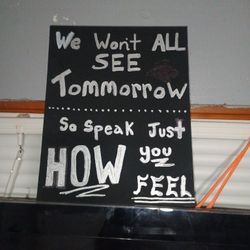 We Won't ALL
SEE
Tommorrow
So Speak Just
HOW you
FEEL